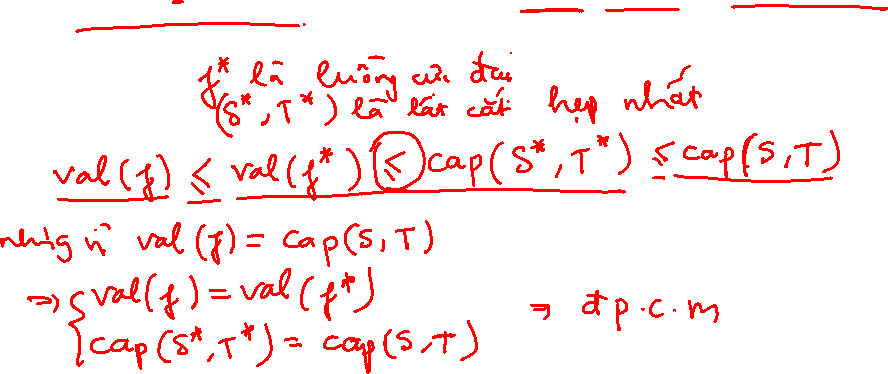 f* là luồng cực đại
(S*, T*) là lát cắt hẹp nhất
val(f) ≤ val(f*) ≤ cap(S*, T*) ≤ cap(S, T)
nhưng vì val(f) = cap(S, T)
⇒ { val(f) = val(f*)
cap(S*, T*) = cap(S, T) ⇒ đ p.c.m